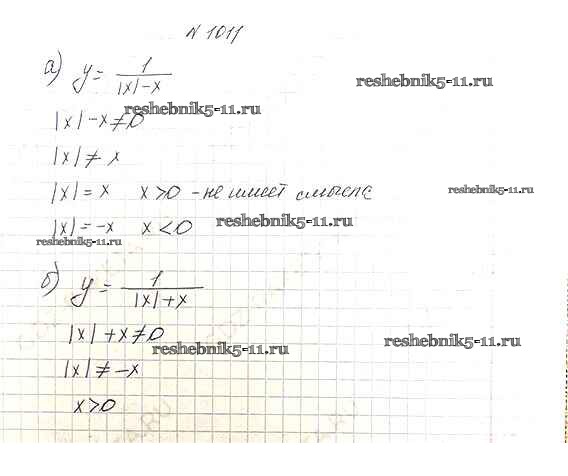 N 1011
а) y = 1/(|x|-x)
reshebnik5-11.ru
reshebnik5-11.ru
|x|-x≠0
|x|≠x
|x|=x x>0 - не имеет смысла
reshebnik5-11.ru
|x|=-x x<0
reshebnik5-11.ru
reshebnik5-11.ru
б) y = 1/(|x|+x)
|x|+x≠0
reshebnik5-11.ru
reshebnik5-11.ru
|x|≠-x
x>0